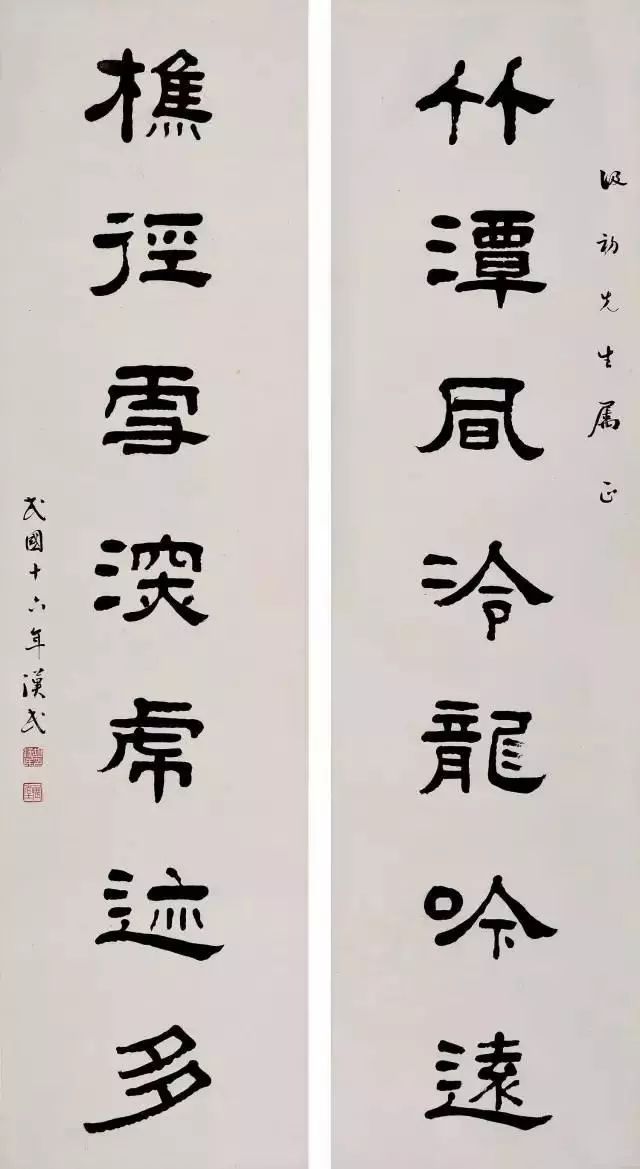 汲初先生属正
竹潭凬冷龍吟遠
樵徑雪深虎迹多
民國十六年漢民